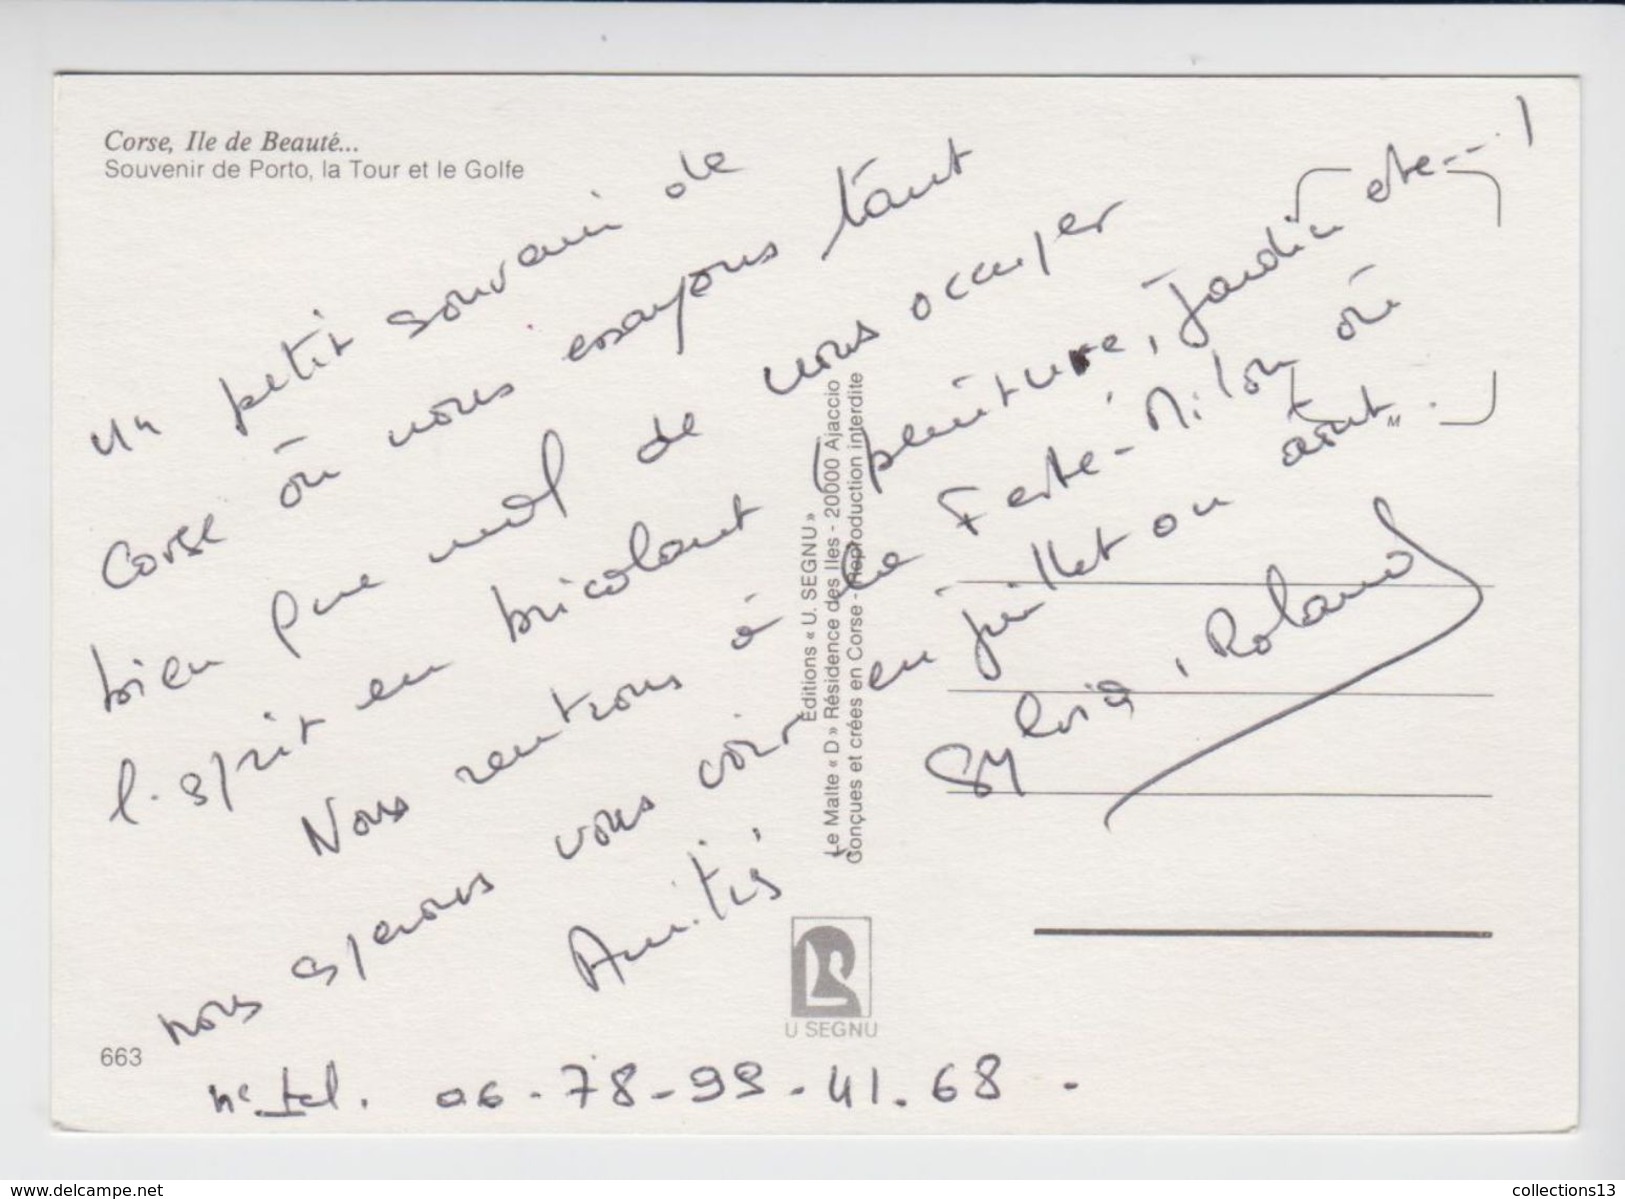 Corse, Ile de Beauté...
Souvenir de Porto, la Tour et le Golfe
un petit souvenir de
Corse où nous essayons tant
bien que mal de nous occuper
l'esprit en bricolant (peinture, Jardin etc---)
Nous rentrons à la Ferté-Milon où
nous espérons vous voir en juillet ou août.
Amitiés
Sylvia, Roland
n° tel. 06-78-99-41.68 -
Editions « U. SEGNU »
Le Malte « D » Résidence des Iles - 20000 Ajaccio
Conçues et créées en Corse - Reproduction interdite
M
U SEGNU
663
www.delcampe.net
collections13